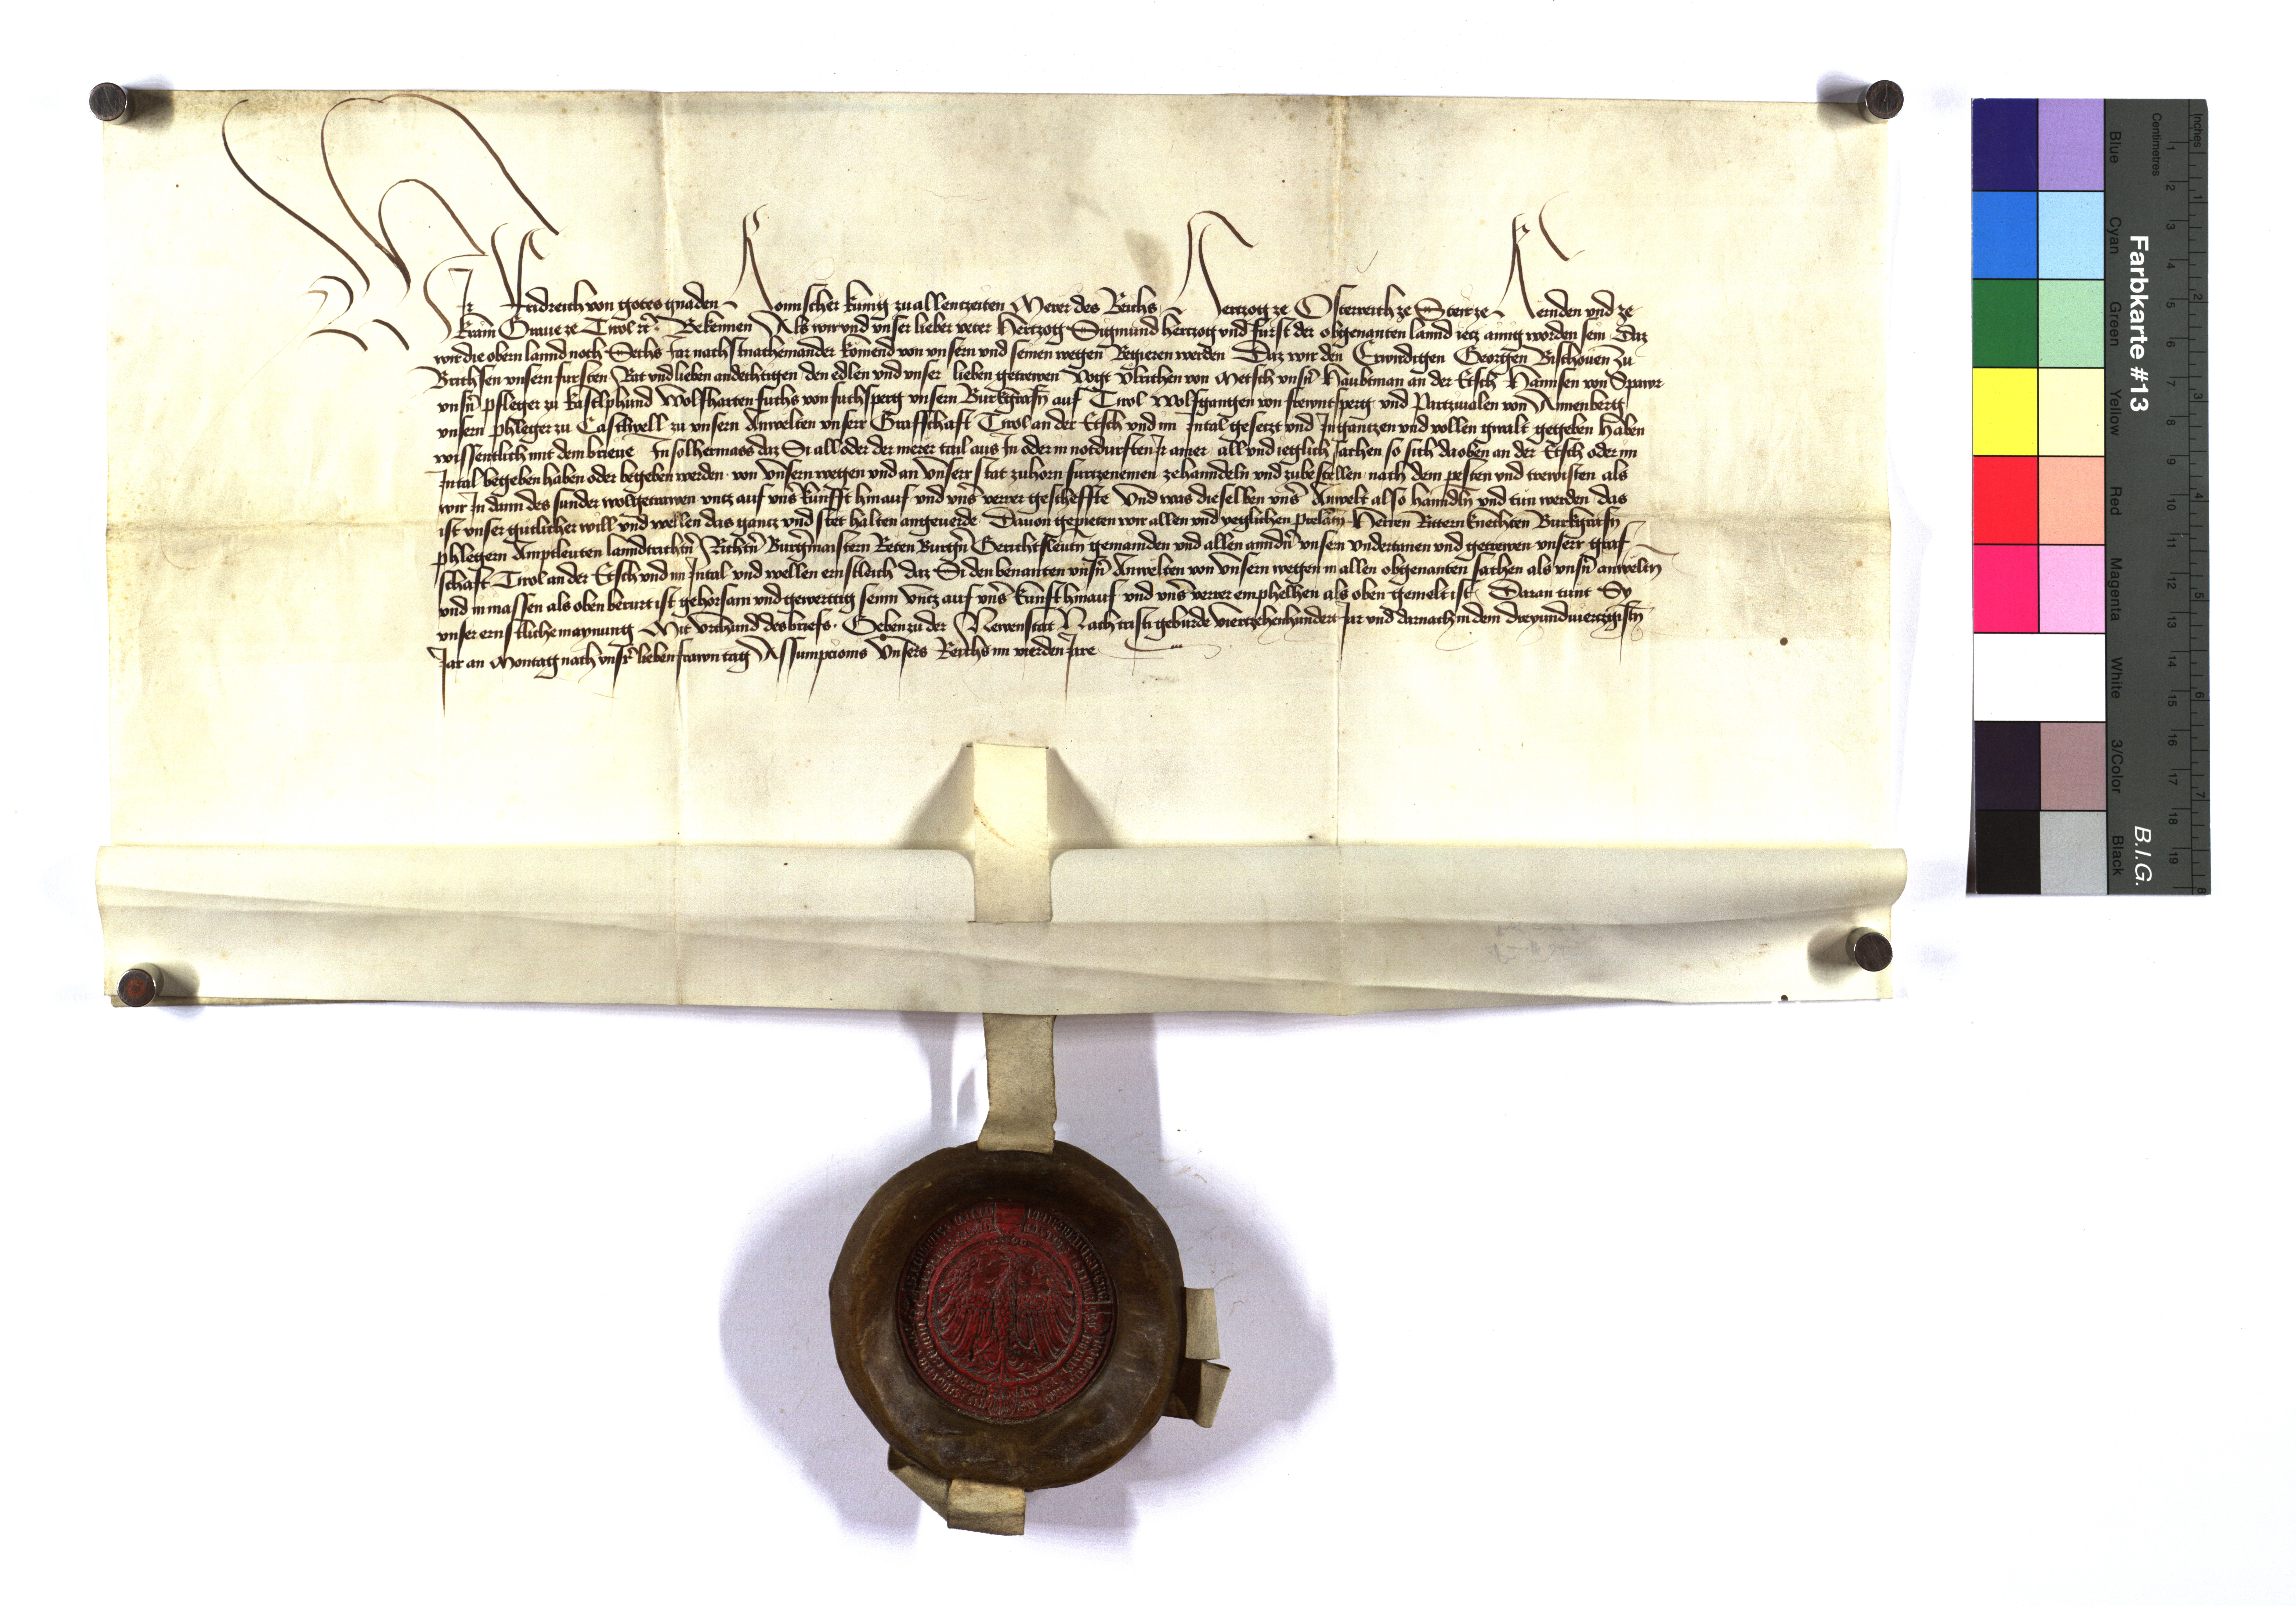 Wir Fridreich von gotes gnaden Romischer kunig zu allentzeiten Merer des Reichs Hertzog ze Osterreich ze Steir ze Kernden und ze
Krain Graue ze Tirol etc. Bekennen Als wir und unser lieber veter Hertzog Sigmund hertzog und furst der obgenanten lannd yetz ainig worden sein Daz
wir die obern lannd noch Sechs Jar nachstnacheinander komend von unsern und seinen wegen Regieren werden Daz wir den Erwirdigen Georgen Bischouen zu
Brichsen unsern fursten Rat und lieben andechtigen den edlen und unser lieben getrewen Vogt Ulrichen von Metsch unsern haubtman an der Etsch Hannsen von Spawr
unsern pfleger zu Kastlphund Wolfharten fuchs von fuchsperg unsern Burkgrafn auf Tirol Wolfgangen von frewntsperg und Partzivalen von Annenberg
unsern phleger zu Castlbell zu unsern Anwelten unserr Grafschaft Tirol an der Etsch und im Intal gesetzt und In gantzen und vollen gwalt gegeben haben
wissentlich mit dem brieue In solhermass daz Si all oder der merer tail aus In oder in notdurften Ir ainer all und ieglich sachen so sich daoben an der Etsch oder im
Intal begeben haben oder begeben werden von unsern wegen und an unserr stat zuhorn furtzenemen zehanndeln und zubestellen nach dem pesten und trewisten als
wir In dann des sunder wolgetrawen untz auf uns kunfft hinauf und uns verrer gescheffte Und was dieselben uns Anwelt also hanndln und tun werden das
ist unser gutlicher will und wellen das gantz und stet halten angeuerde Dauon gepieten wir allen und yeglichen prelatn Herren Rittern knechten Burkgrafn
phlegern Amptleuten lanndrichtern Richtern Burgermaistern Reten Burgern Gerichtsleutn gemainden und allen anndern unsern undertanen und getrewen unserr graf
schaft Tirol an der Etsch und im Intal und wellen ernstleich daz Si den benanten unsern Anwelten von unsern wegen in allen obgenanten sachen als unsern anweltn
und in massen als oben berurt ist gehorsam und gewerttig seinn untz auf uns kunft hinauf und uns verrer emphelhen als oben gemelt ist Daran tunt Sy
unser ernstliche maynung Mit Urchund des briefs. Geben zu der Newenstat Nach cristi geburde viertzehenhundert Jar und darnach in dem dreyundviertzigistn
Jar an Montag nach unser lieben frawn tag Assumpcionis Unsers Reichs im vierden Jare
Farbkarte #13
B.I.G.
Blue
Cyan
Green
Yellow
Red
Magenta
White
3/Color
Black
Centimetres
Inches
1 2 3 4 5 6 7 8 9 10 11 12 13 14 15 16 17 18 19
1 2 3 4 5 6 7 8